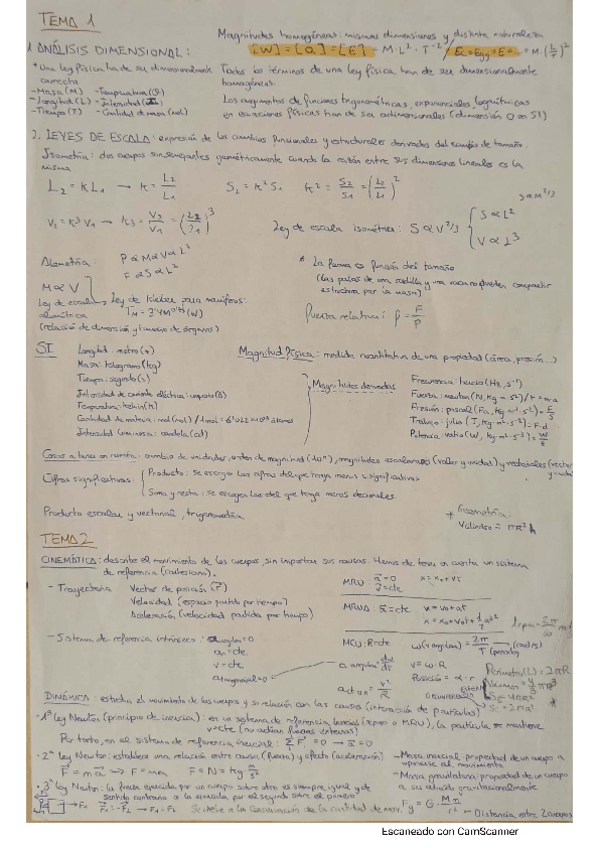 TEMA 1
Magnitudes homogéneas: mismas dimensiones y distinta naturaleza
[W] = [Q] = [E] - M·L²·T⁻²
1. ANÁLISIS DIMENSIONAL:
* Una ley física ha de ser dimensionalmente correcta
Todos los términos de una ley física han de ser dimensionalmente homogéneos.
- Masa (M) - Temperatura (θ)
- Longitud (L) - Intensidad
- Tiempo (T) - Cantidad de masa (mol)
Los argumentos de funciones trigonométricas, exponenciales, logarítmicas
en ecuaciones físicas han de ser adimensionales (dimensión 0 en SI)
2. LEYES DE ESCALA: expresión de los cambios funcionales y estructurales derivados del cambio de tamaño.
Isometría: dos cuerpos son semejantes geométricamente cuando la razón entre sus dimensiones lineales es la
misma
L₂ = K L₁ → K = L₂/L₁
S₂ = K² S₁ K² = S₂/S₁ = (L₂/L₁)²
S ∝ M^2/3
V₂ = K³ V₁ → K³ = V₂/V₁ = (L₂/L₁)³
Ley de escala isométrica: S ∝ V^2/3 { S ∝ L² V ∝ L³
Alometría: P ∝ M ∝ V ∝ L³
F ∝ S ∝ L²
* La forma es función del tamaño
M ∝ V
Ley de escala alométrica
Ley de Kleiber para mamíferos:
(W)
(relación de dimensión y tamaño de órganos)
Fuerza relativa: f = F/P
SI
Longitud: metro (m)
Masa: kilogramo (kg)
Tiempo: segundo (s)
Intensidad de corriente eléctrica: amperio (A)
Temperatura: kelvin (K)
Cantidad de materia: mol (mol)
Intensidad luminosa: candela (cd)
Magnitud física: medida cuantitativa de una propiedad (área, presión...)
Magnitudes derivadas
Frecuencia: hercio (Hz, s⁻¹)
Fuerza: newton (N, kg·m·s⁻²) / F = m·a
Presión: pascal (Pa, kg·m⁻¹·s⁻²) = F/S
Trabajo: julio (J, kg·m²·s⁻²) = F·d
Potencia: vatio (W, kg·m²·s⁻³) = W/t
Cosas a tener en cuenta: cambio de unidades, orden de magnitud (10ⁿ), magnitudes escalares (valor y unidad) y vectoriales
Cifras significativas: { Producto: se escogen las cifras del que traga menos significativas
Suma y resta: se escogen las del que traga menos decimales.
Producto escalar y vectorial, trigonometría
+ Geometría:
Vcilindro = πR²h
TEMA 2
CINEMÁTICA: describe el movimiento de los cuerpos, sin importar sus causas. Hemos de tener en cuenta un sistema
de referencia (cartesiano).
- Trayectoria Vector de posición (r⃗)
Velocidad (espacio partido por tiempo)
Aceleración (velocidad partida por tiempo)
MRU: a⃗ = 0 v⃗ = cte
MRUA: a⃗ = cte v = v₀ + at
x = x₀ + v₀t + 1/2 at²
- Sistema de referencia intrínseco: a angular = 0
aₙ = cte
v = cte
a tangencial = 0
MCU: R = cte ω (v angular) = 2π/T (periodo) (rad/s)
a angular = dω/dt
v = ω·R
Perímetro (L) = 2πR
DINÁMICA: estudia el movimiento de los cuerpos y su relación con las causas (interacción de partículas)
- 1ª ley Newton (principio de inercia): en un sistema de referencia inercial (reposo o MRU), la partícula se mantiene
v = cte (no actúan fuerzas externas)
Por tanto, en el sistema de referencia inercial: Σ F⃗ᵢ = 0 → a⃗ = 0
- 2ª ley Newton: establece una relación entre causa (fuerza) y efecto (aceleración)
F⃗ = m a⃗ ⇒ F = m·a F = N = kg·m/s²
- Masa inercial: propiedad de un cuerpo a
oponerse al movimiento
- Masa gravitatoria: propiedad de un cuerpo
a ser atraído gravitacionalmente
- 3ª ley Newton: la fuerza ejercida por un cuerpo sobre otro es siempre igual y de
sentido contrario a la ejercida por el segundo sobre el primero
Fg = G · M·m/r² ← Distancia entre 2 cuerpos
Escaneado con CamScanner